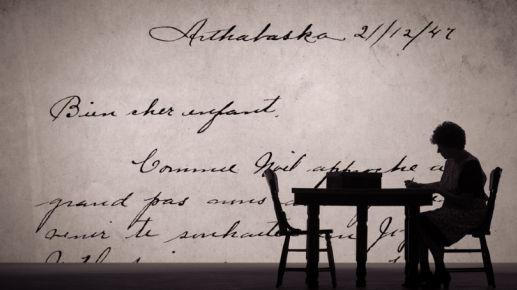 Arthabaska 21/12/47
Bien cher enfant,
Comme Noël approche a
grand pas nous
venir te souhaiter un Joy